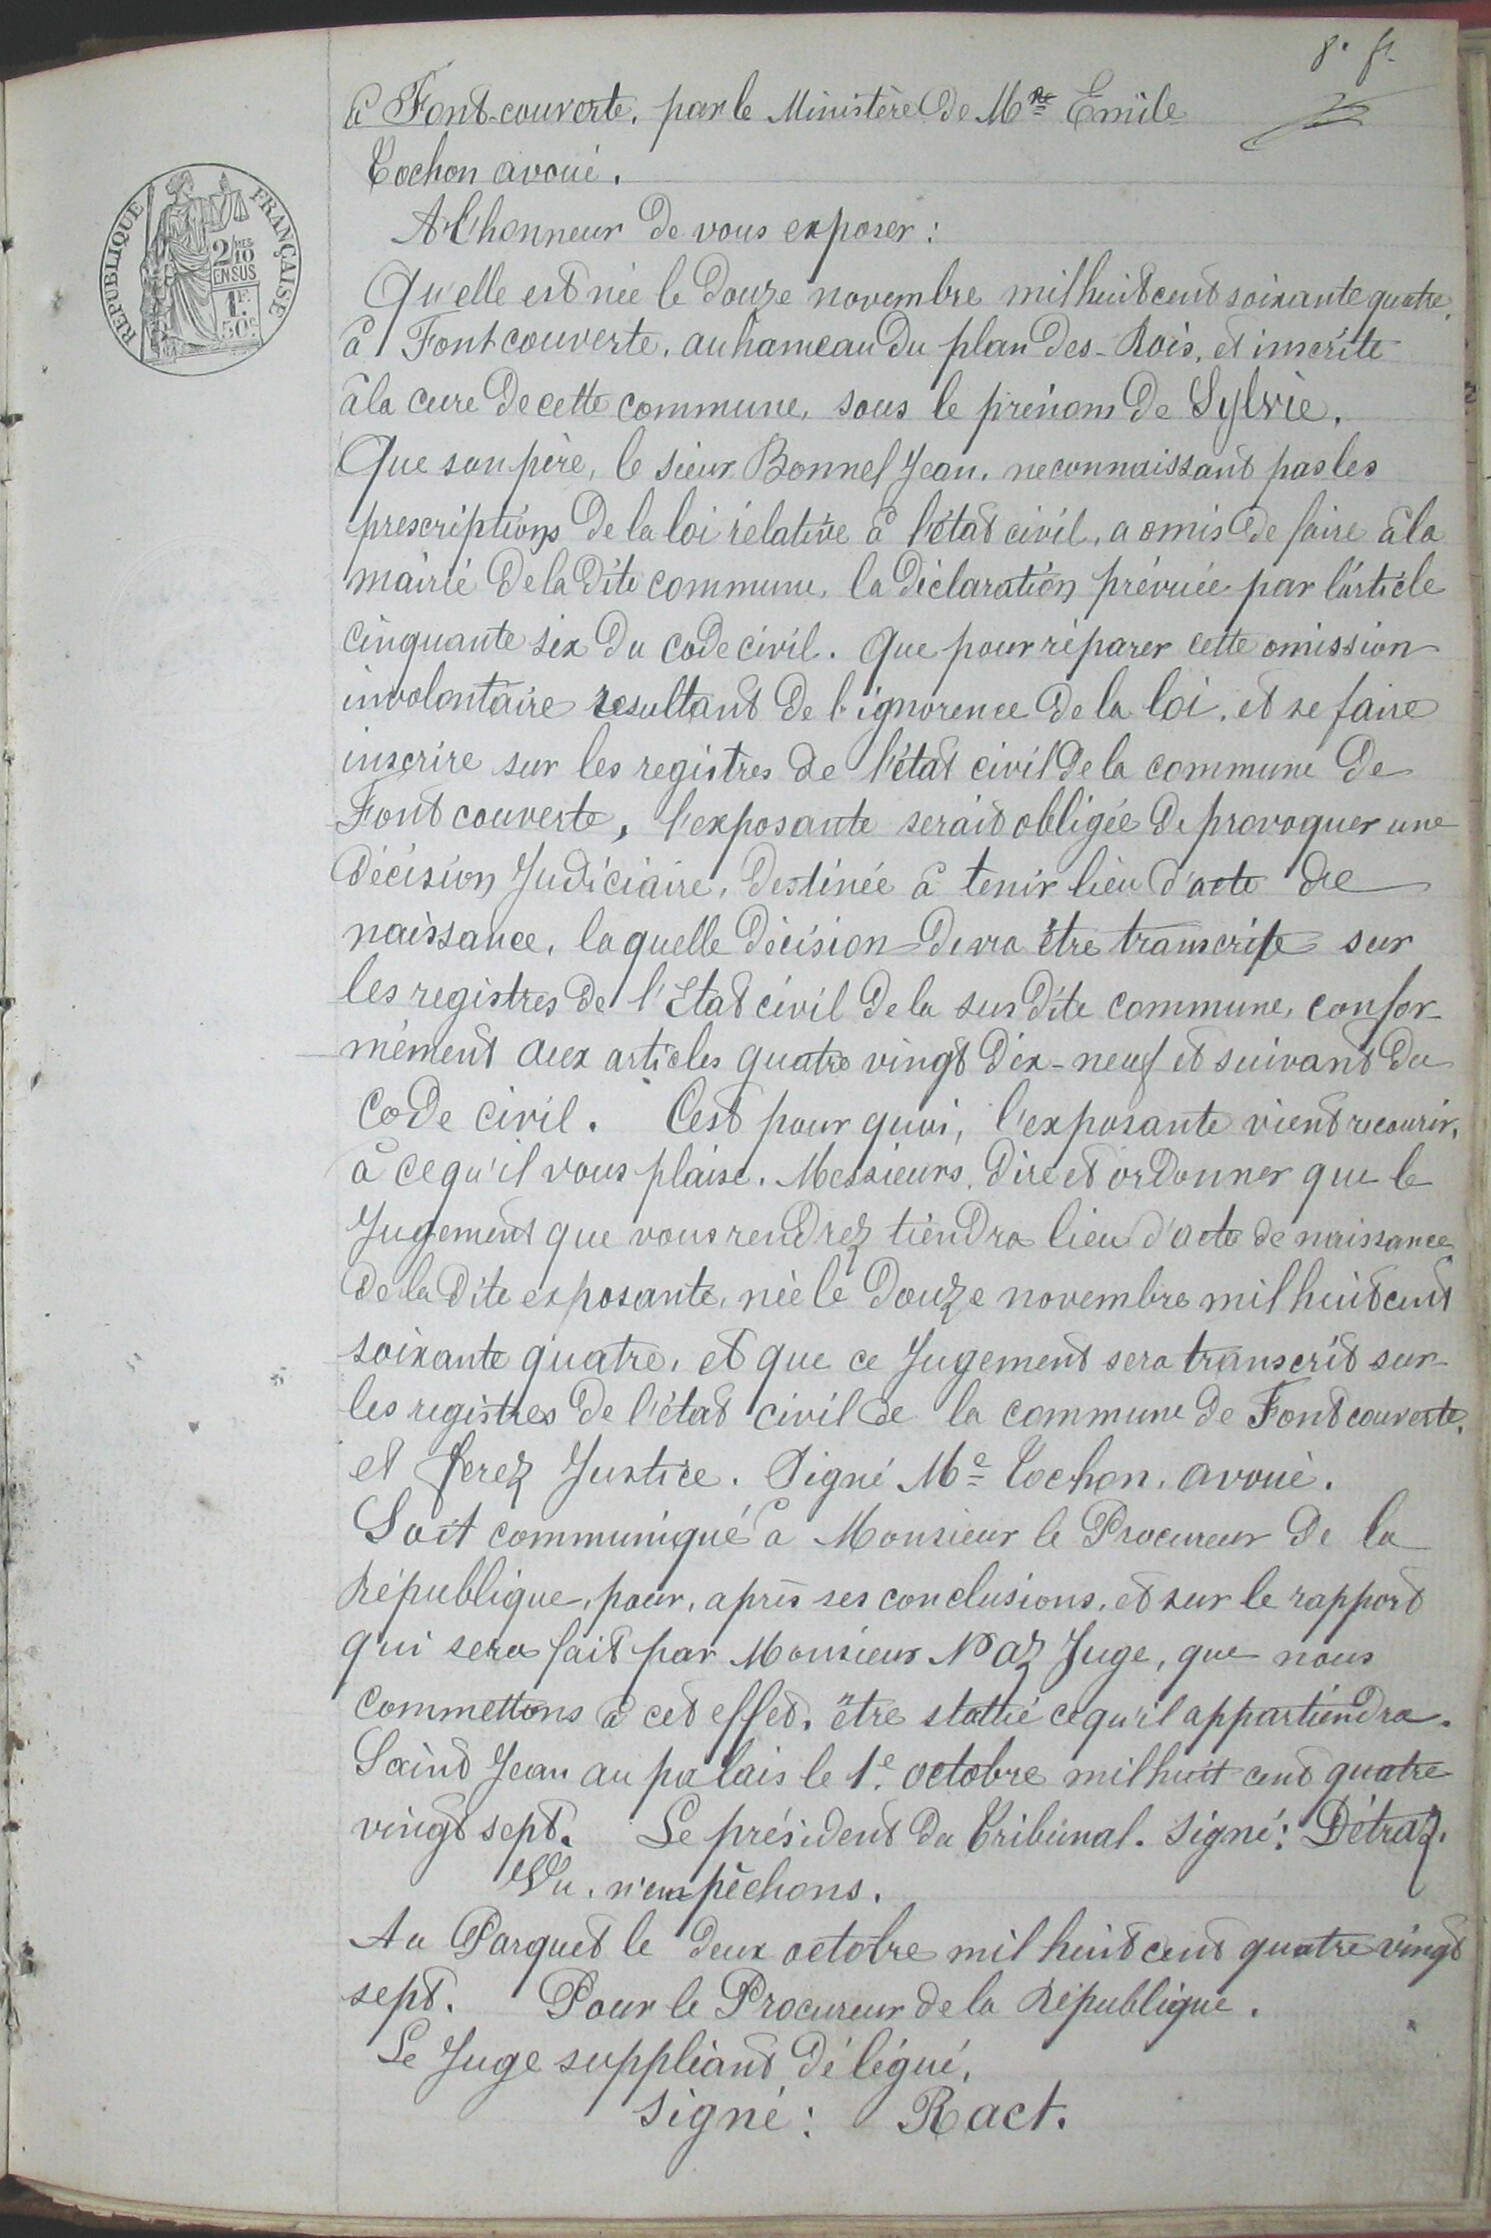 8e ft
à Font-couverte, par le Ministère de Mre Emile
Cochon avoué.
A l'honneur de vous exposer :
Qu'elle est née le douze novembre mil huit cent soixante quatre,
à Fontcouverte, au hameau du plan des-Rois, et inscrite
à la cure de cette commune, sous le prénom de Sylvie.
Que son père, le sieur Bonnel Jean, ne connaissant pas les
prescriptions de la loi rélative à l'état civil, a omis de faire à la
mairie de la dite commune, la déclaration prévuée par l'article
cinquante six du code civil. Que pour réparer cette omission
involontaire resultant de l'ignorence de la loi, et se faire
inscrire sur les registres de l'état civil de la commune de
Font couverte, l'exposante serait obligée de provoquer une
décision Judiciaire, destinée à tenir lieu d'acte de
naissance, laquelle décision devra être transcrite sur
les registres de l'Etat civil de la sus dite commune, confor-
mément aux articles quatre vingt dix-neuf et suivant du
code civil. C'est pour quoi, l'exposante vient recourir,
à ce qu'il vous plaise. Messieurs, dire et ordonner que le
Jugement que vous rendrez tiendra lieu d'acte de naissance
de la dite exposante, née le douze novembre mil huit cent
soixante quatre, et que ce Jugement sera transcrit sur
les registres de l'état civil de la commune de Font couverte.
et ferez Justice. Signé Me Cochon, avoué.
Soit communiqué à Monsieur le Procureur de la
République, pour, après ses conclusions, et sur le rapport
qui sera fait par Monsieur Naz Juge, que nous
commettons à cet effet, être stattué ce qu'il appartiendra.
Saint Jean au palais le 1e. octobre mil huit cent quatre
vingt sept. Le président du Tribunal. Signé : Détraz.
Vu, n'empêchons.
Au Parquet le deux octobre mil huit cent quatre vingt
sept. Pour le Procureur de la République.
Le Juge suppléant délégué,
signé : Ract.
REPUBLIQUE FRANÇAISE
2/10 MES
EN SUS
1F.
50c